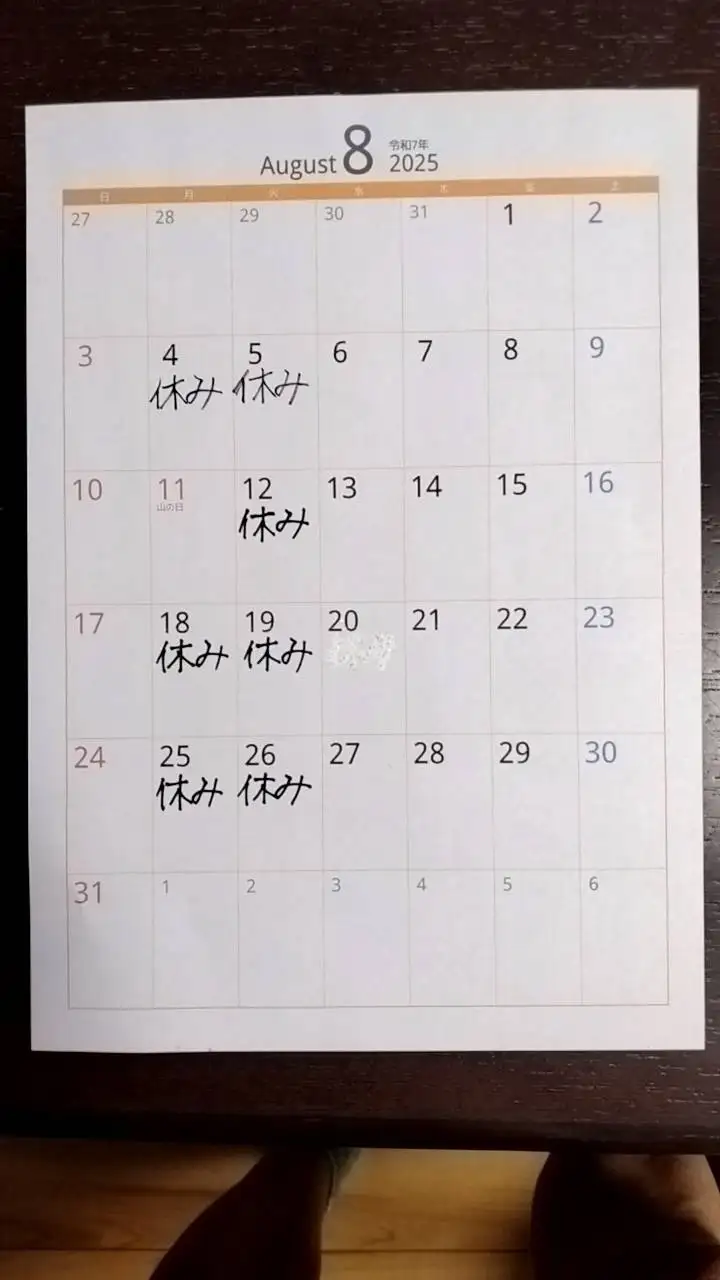 August 8 令和7年 2025
日 月 火 水 木 金 土
27 28 29 30 31 1 2
3 4 5 6 7 8 9
休み 休み
10 11 12 13 14 15 16
山の日
休み
17 18 19 20 21 22 23
休み 休み
24 25 26 27 28 29 30
休み 休み
31 1 2 3 4 5 6